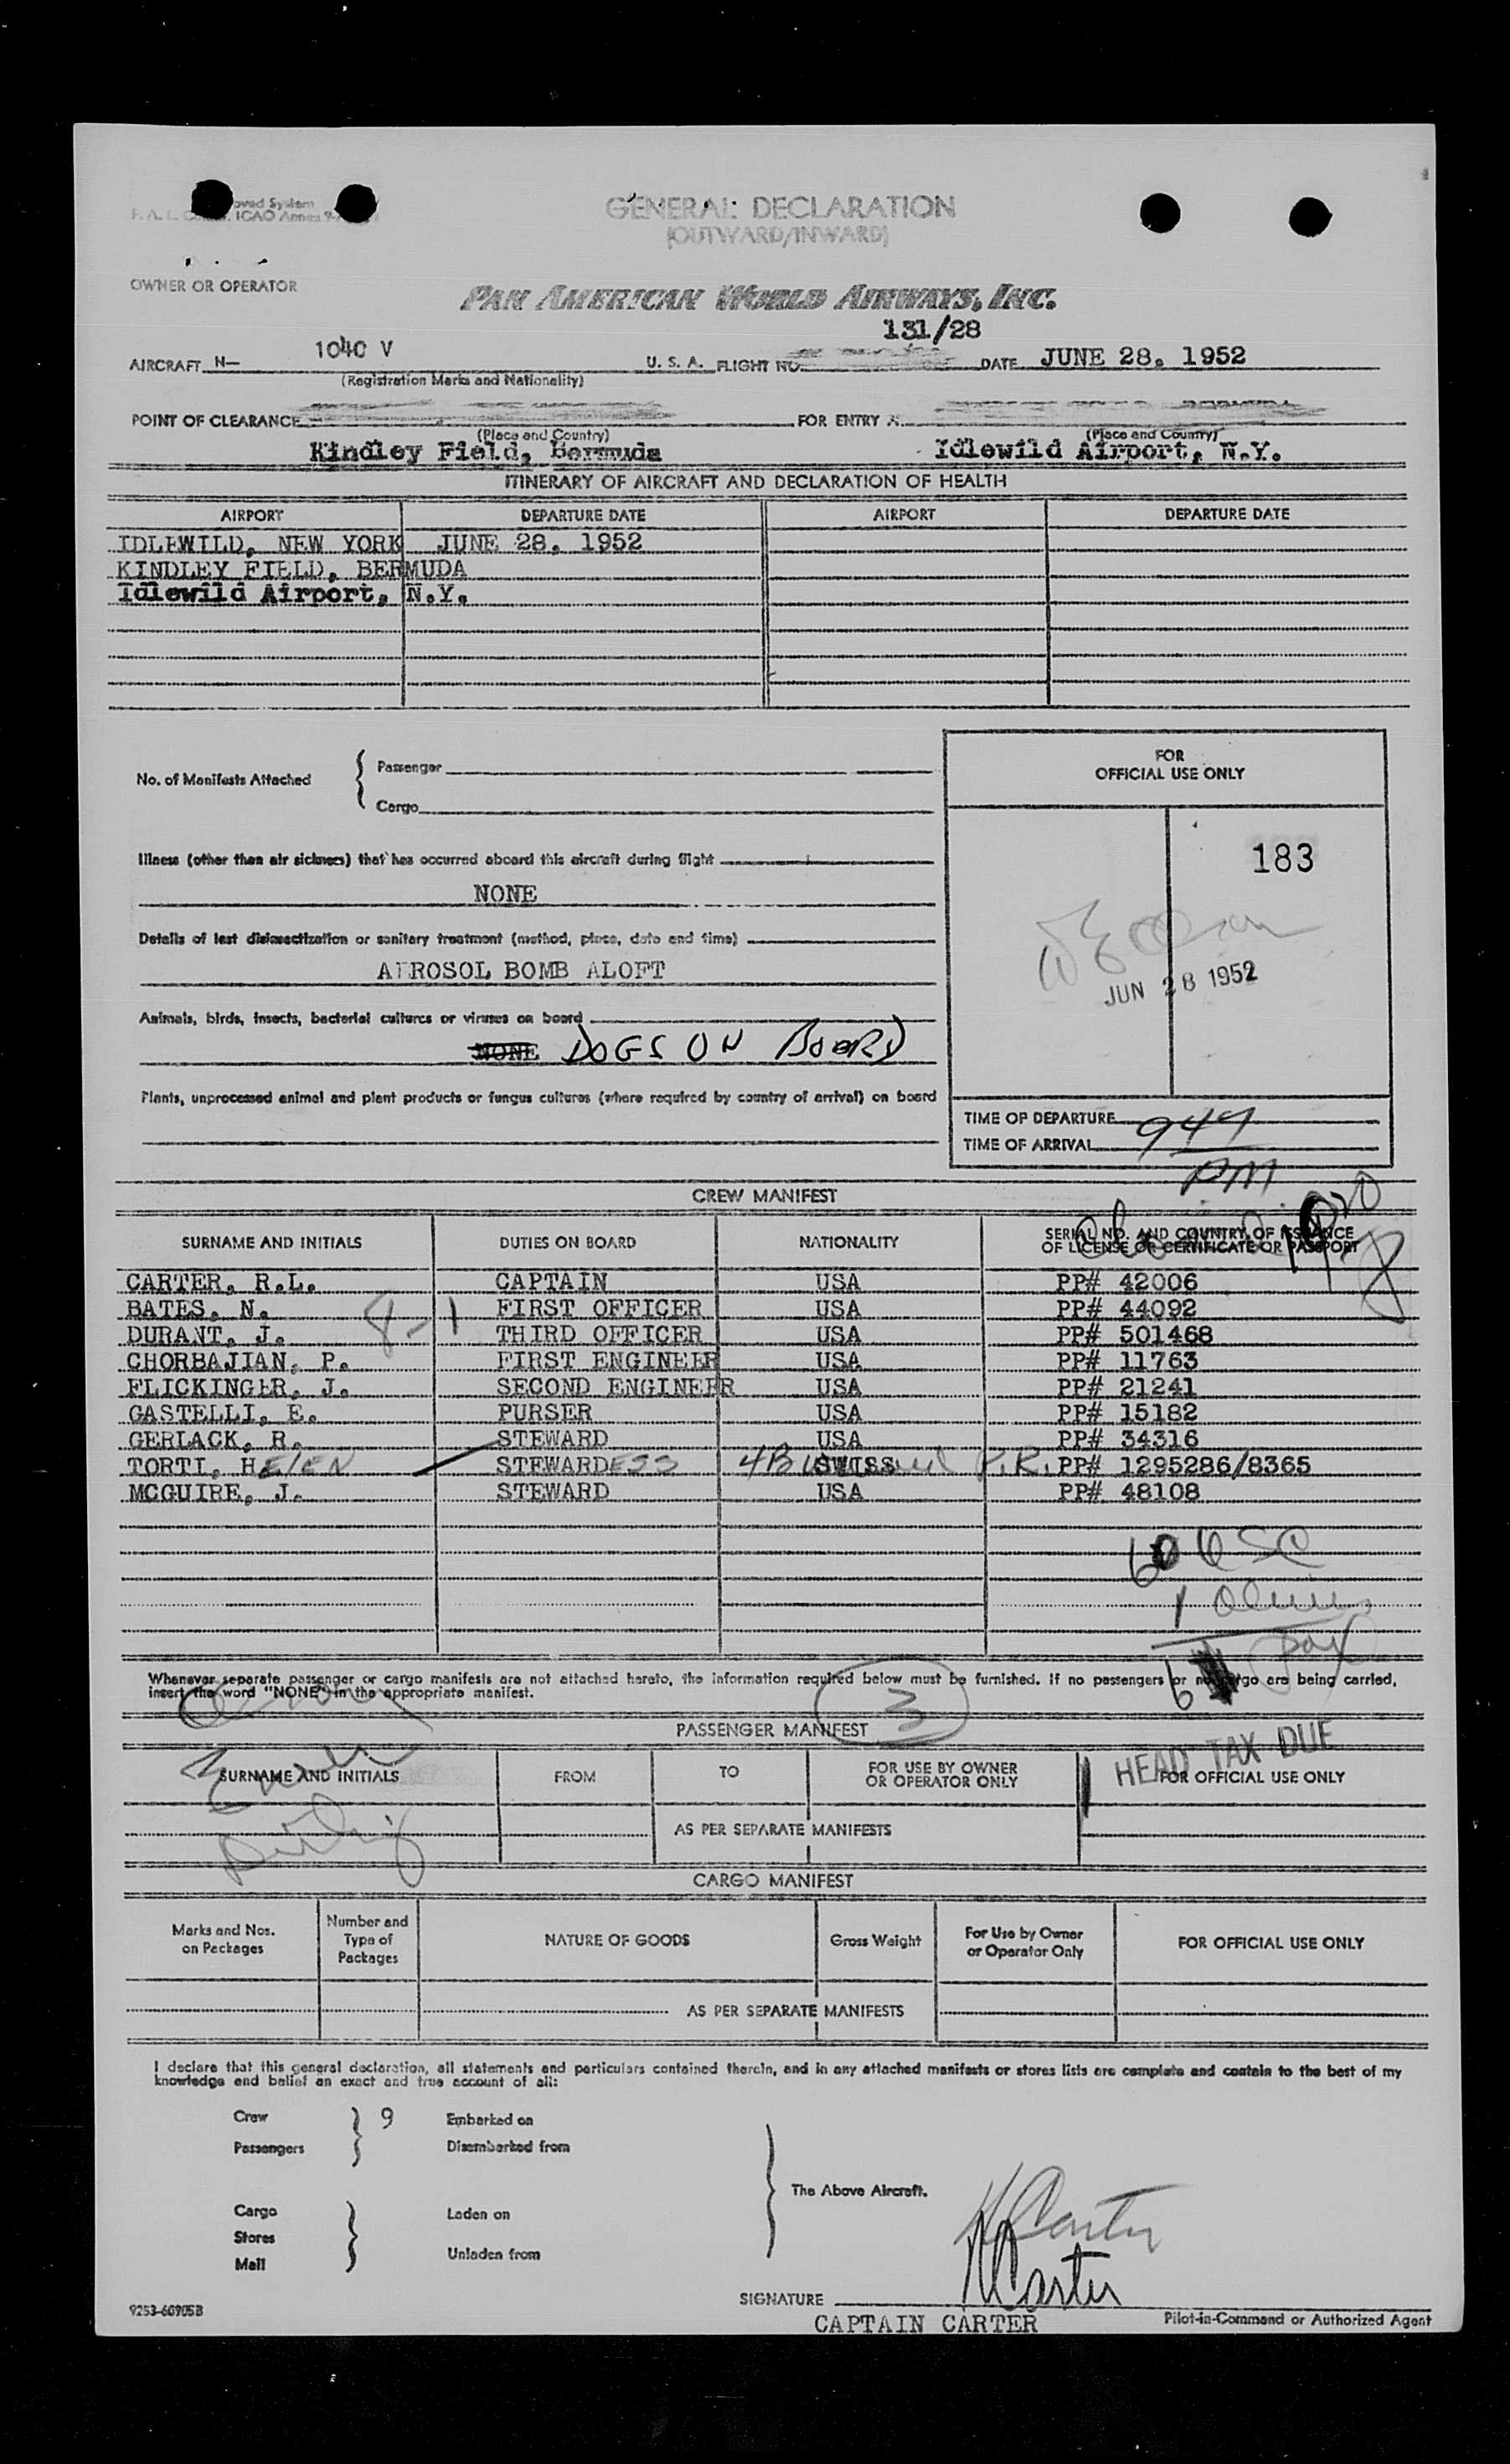 oved System
F. A. L. ICAO Annex 9-
GENERAL DECLARATION
(OUTWARD/INWARD)
OWNER OR OPERATOR
PAN AMERICAN WORLD AIRWAYS, INC.
131/28
AIRCRAFT N- 1040 V U. S. A. FLIGHT NO. DATE JUNE 28, 1952
(Registration Marks and Nationality)
POINT OF CLEARANCE FOR ENTRY
(Place and Country) (Place and Country)
Kindley Field, Bermuda Idlewild Airport, N.Y.
ITINERARY OF AIRCRAFT AND DECLARATION OF HEALTH
AIRPORT DEPARTURE DATE AIRPORT DEPARTURE DATE
IDLEWILD, NEW YORK JUNE 28, 1952
KINDLEY FIELD, BERMUDA
Idlewild Airport, N.Y.
No. of Manifests Attached { Passenger
Cargo
FOR
OFFICIAL USE ONLY
183
JUN 28 1952
Illness (other than air sickness) that has occurred aboard this aircraft during flight
NONE
Details of last disinsectization or sanitary treatment (method, place, date and time)
AEROSOL BOMB ALOFT
Animals, birds, insects, bacterial cultures or viruses on board
NONE DOGS ON BOARD
Plants, unprocessed animal and plant products or fungus cultures (where required by country of arrival) on board
TIME OF DEPARTURE
TIME OF ARRIVAL 949
PM
CREW MANIFEST
SURNAME AND INITIALS DUTIES ON BOARD NATIONALITY SERIAL NO. AND COUNTRY OF ISSUANCE
OF LICENSE OR CERTIFICATE OR PASSPORT
CARTER, R.L. CAPTAIN USA PP# 42006
BATES, N. FIRST OFFICER USA PP# 44092
8-1
DURANT, J. THIRD OFFICER USA PP# 501468
CHORBAJIAN, P. FIRST ENGINEER USA PP# 11763
FLICKINGER, J. SECOND ENGINEER USA PP# 21241
GASTELLI, E. PURSER USA PP# 15182
GERLACK, R. STEWARD USA PP# 34316
TORTI, HELEN STEWARDESS SWISS P.R. PP# 1295286/8365
MCGUIRE, J. STEWARD USA PP# 48108
60 USC
1 Alien
Pax
Whenever separate passenger or cargo manifests are not attached hereto, the information required below must be furnished. If no passengers or no cargo are being carried,
insert the word "NONE" in the appropriate manifest.
3
PASSENGER MANIFEST
HEAD TAX DUE
SURNAME AND INITIALS FROM TO FOR USE BY OWNER
OR OPERATOR ONLY FOR OFFICIAL USE ONLY
AS PER SEPARATE MANIFESTS
CARGO MANIFEST
Marks and Nos.
on Packages Number and
Type of
Packages NATURE OF GOODS Gross Weight For Use by Owner
or Operator Only FOR OFFICIAL USE ONLY
AS PER SEPARATE MANIFESTS
I declare that this general declaration, all statements and particulars contained therein, and in any attached manifests or stores lists are complete and contain to the best of my
knowledge and belief an exact and true account of all:
Crew 9 Embarked on
Passengers Disembarked from
The Above Aircraft.
Cargo Laden on
Stores
Mail Unladen from
R Carter
R Carter
SIGNATURE
CAPTAIN CARTER Pilot-in-Command or Authorized Agent
9253-60905B